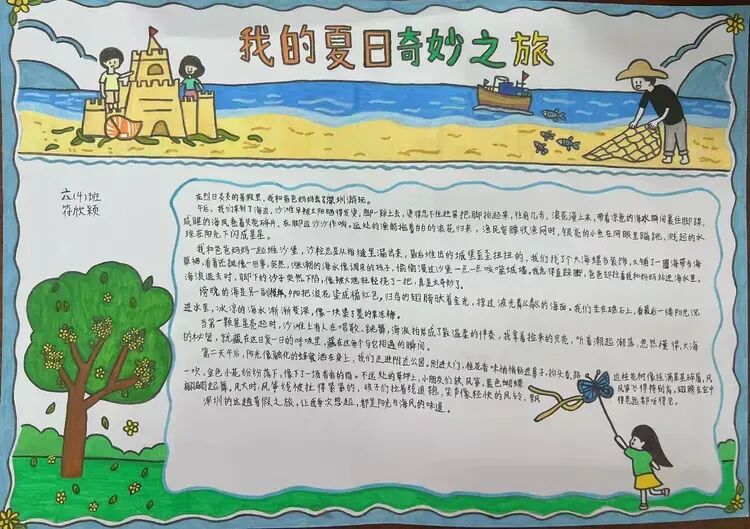 我的夏日奇妙之旅
六(4)班
符欣颖
在烈日炎炎的暑假里,我和爸爸妈妈去了深圳游玩。
午后,我们来到了海边,沙滩早被太阳晒得发烫,脚一踩上去,烫得忍不住赶紧把脚抬起来,往前几步,浪花漫上来,带着凉意的海水瞬间裹住脚踝,
咸腥的海风卷着贝壳碎片,在脚边沙沙作响。远处的渔船拖着白白的浪花归来,渔民弯腰收渔网时,银亮的小鱼在网眼里蹦跳,溅起的水
珠在阳光下闪成星星。
我和爸爸妈妈一起堆沙堡,沙粒总是从指缝里漏出来,最后堆出的城堡歪歪扭扭的,我们找了个大海螺当装饰,又铺了一圈海带当海
草裙,看着还挺像一回事。突然,涨潮的海水像调皮的孩子,偷偷漫过沙堡,一点一点啃城墙,我急得直跺脚,爸爸却拉着我和妈妈站进海水里。
海浪退去时,脚下的沙子突然下陷,像被大地轻轻拽了一把,真是太奇妙了。
傍晚的海是另一副模样,夕阳把浪花染成橘红色,归鸟的翅膀驮着金光,掠过波光粼粼的海面。我们坐在礁石上,看最后一缕阳光沉
进水里,冰凉的海水渐渐变深,像一块浸了墨的蓝冰糖。
当第一颗星星亮起时,沙滩上有人在唱歌、跳舞,海浪拍岸成了最温柔的伴奏,我拿着捡来的贝壳,听着潮起潮落,忽然懂得,大海
的秘密,就藏在这日复一日的呼吸里,藏在这每个与它相遇的瞬间。
第二天午后,阳光像融化的蜂蜜洒在身上,我们走进附近公园。刚进大门,桂花香味悄悄钻进鼻子,抬头看,路边桂花树像挂满星星碎屑,风
一吹,金色小花纷纷落下,像下了一场香香的雨。不远处的草坪上,小朋友们放风筝,蓝色蝴蝶风筝飞得特别高,翅膀在空中
翩翩起舞,风大时,风筝线被扯得紧紧的,孩子们拉着线追跑,笑声像轻快的风铃,飘得老远都听得见。
深圳的这趟暑假之旅,让我每次想起,都是阳光与海风的味道。